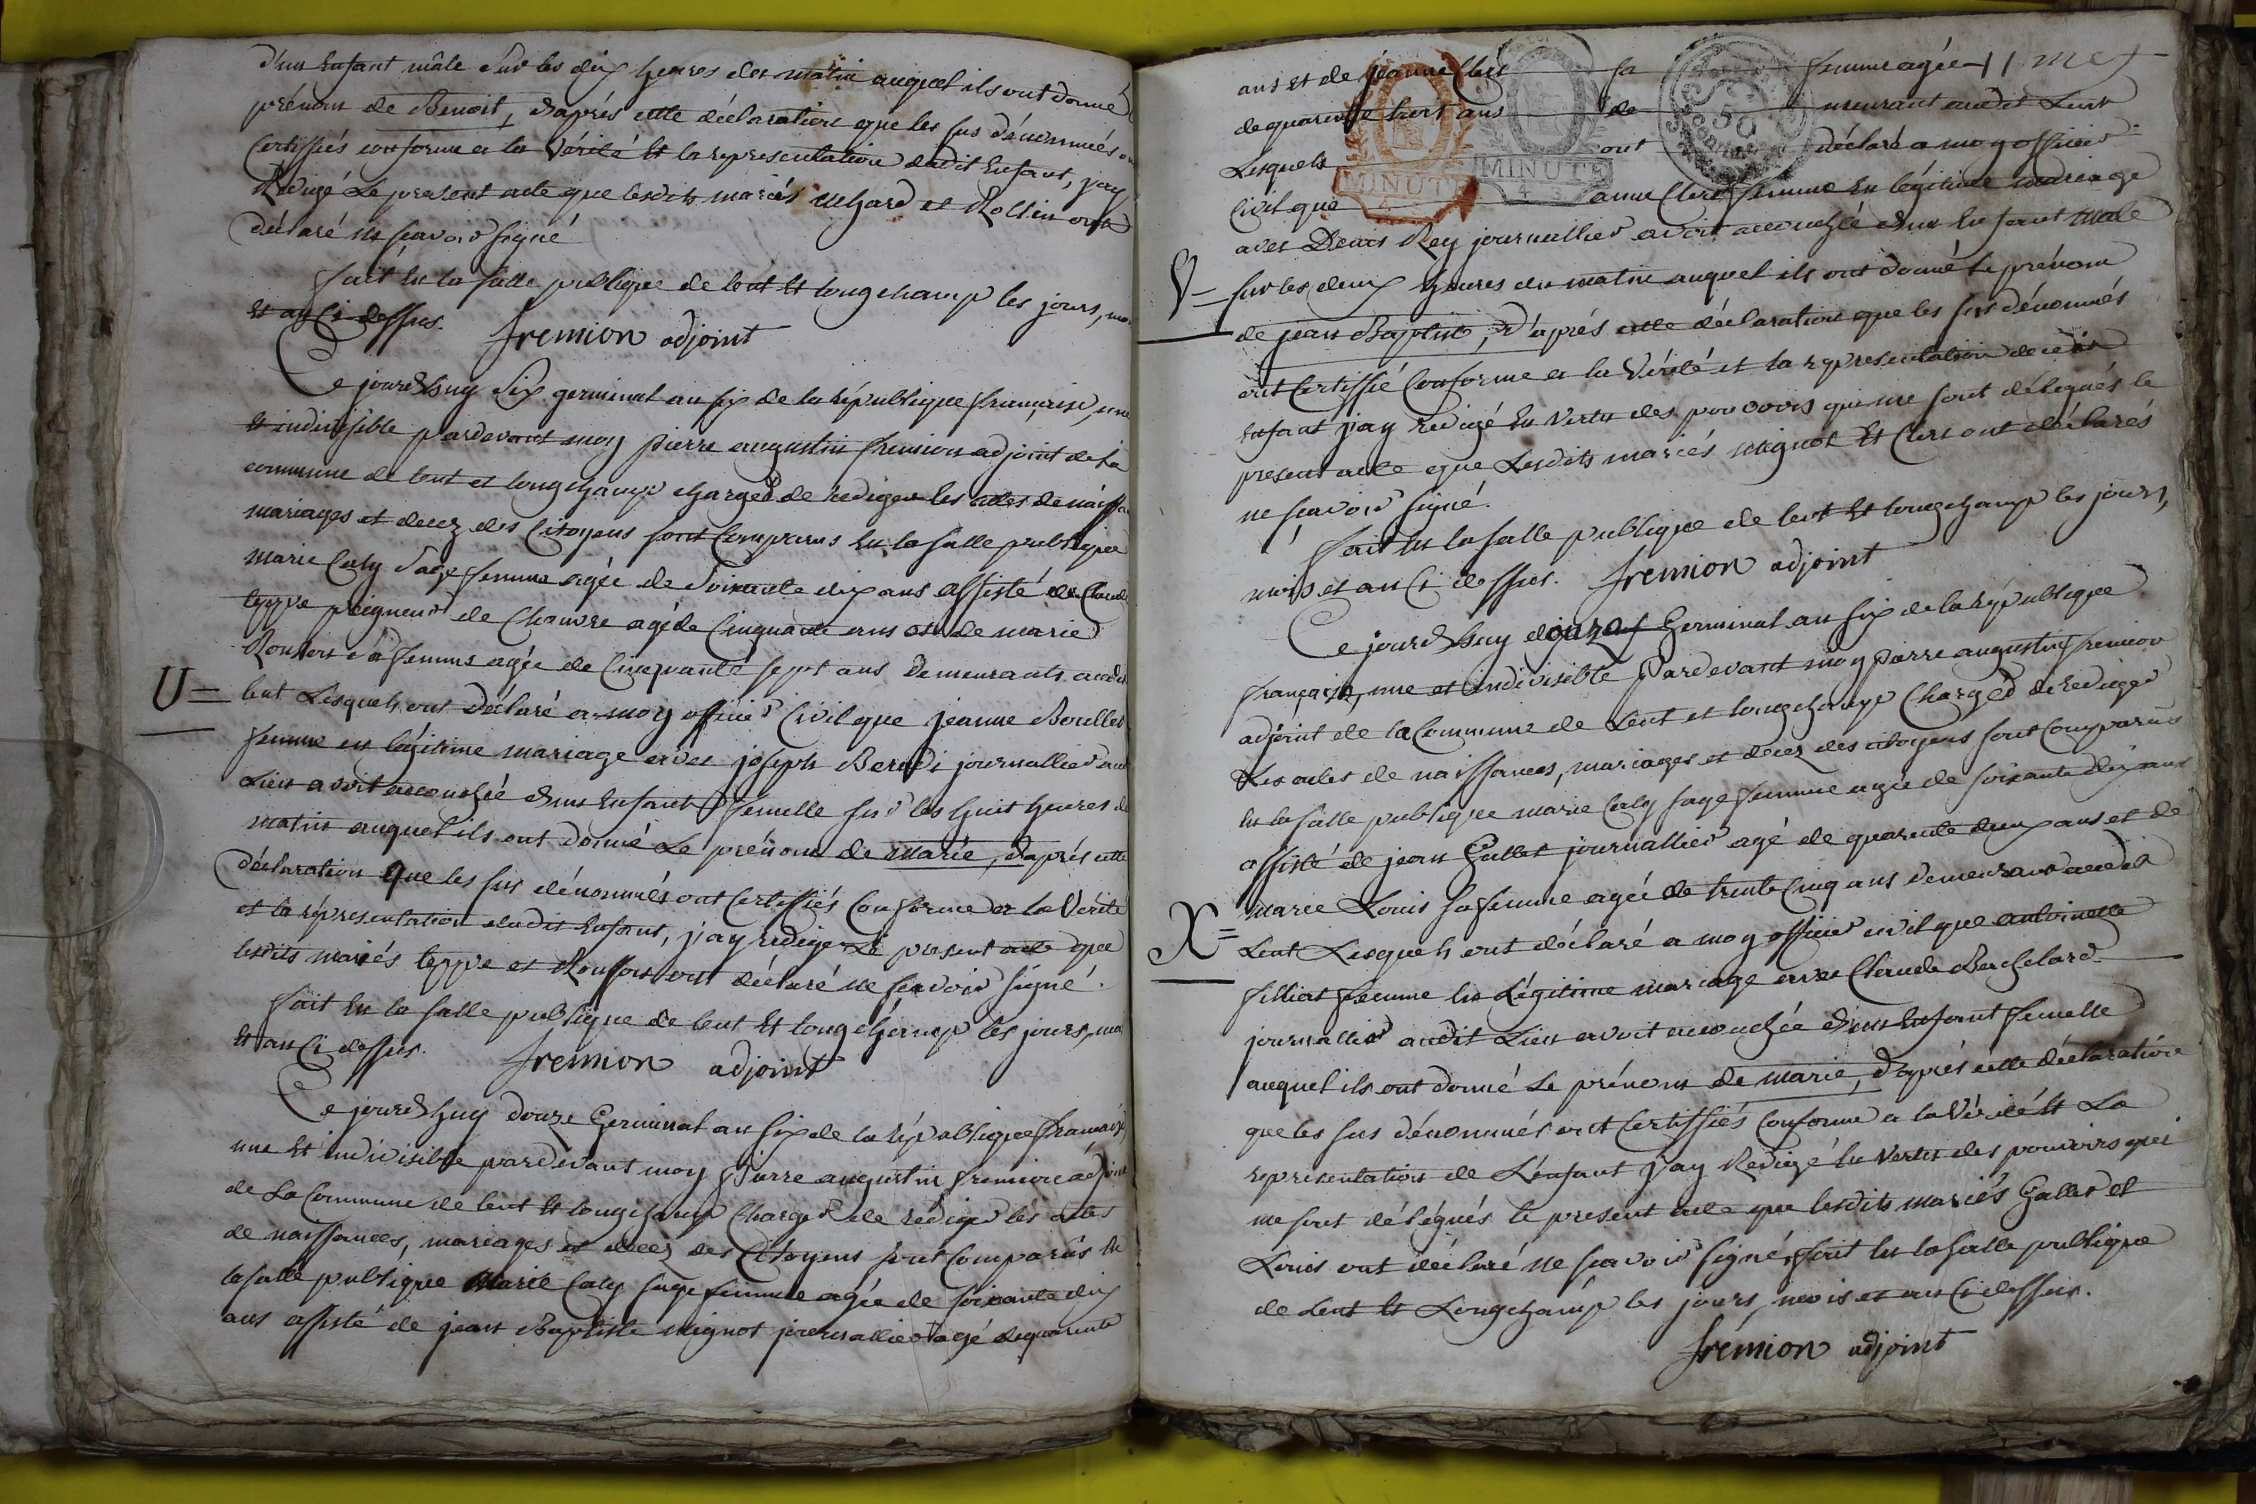 d'un Enfant mâle Sur les dix heures des matin auquel ils ont donné
prénom de Benoit, d'après cette déclaration que les sus dénommés
Certiffiés conforme a la Vérité Et la representation dudit Enfant, j'ay
Rédigé Le present acte que lesdits mariés et Rollin ont
déclaré ne scavoir signé
fait En la salle publique de lent Et longchamp les jours, moi
Et an Ci dessus. fremion adjoint
Ce jourd'huy Six germinal an six de la République française, une
Et indivisible pardevant moy pierre augustin fremion adjoint de la
commune de lent et longchamp chargé de rediger les actes de naissa
mariages et decez des Citoyens sont Comparus En la salle publique
marie Caly Sage femme agée de Soixante dix ans assisté de Claude
teppe peigneur de Chanvre agé de Cinquante ans et de marie
Rousson sa femme agée de Cinquante sept ans Demeurants audit
U= lent Lesquels ont déclaré a moy officier Civil que jeanne Borellet
femme en légitime mariage avec joseph journallier aud
Lieu avoit accouchée d'un Enfant femelle sur les huit heures du
matin auquel ils ont donné Le prénom de marie, d'après cette
déclaration que les sus dénommés ont Certiffiés Conforme a la Vérité
et la représentation dudit Enfant, j'ay rediger Le present acte que
lesdits mariés teppe et Rousson ont déclaré ne scavoir signé.
fait En la salle publique de lent Et longchamp les jours, moi
Et an Ci dessus. fremion adjoint
Ce jourd'huy douze Germinal an six de la République française
une Et indivisible pardevant moy Pierre augustin fremion adjoint
de La Commune de lent Et longchamp Chargé de rédiger les actes
de naissances, mariages et decez des Citoyens sont Comparus En
la salle publique Marie Caly sage femme agée de soixante dix
ans assisté de jean Baptiste mignot journallier agé de quarante
ans et de jeanne Clerc sa femme agée
de quarante huit ans de meurant audit Lent
Lesquels ont déclaré a moy officier
Civil que anne Clerc femme En légitime mariage
avec Denis Rey journallier avoit accouchée d'un Enfant male
V= sur les deux heures du matin auquel ils ont donné le prénom
de jean Baptiste, d'après cette déclaration que les sus dénommés
ont Certiffié Conforme a la Vérité et la representation de cet
enfant j'ay redigé En Vertu des pouvoirs qui me sont délégués le
present acte que Lesdits mariés mignot Et Clerc ont déclarés
ne scavoir signé.
fait En la salle publique de lent Et longchamp les jours,
mois et an Ci dessus. fremion adjoint
Ce jourd'huy Germinal an six de la République
française, une et indivisible Pardevant moy pierre augustin fremion
adjoint de la Commune de Lent et longchamp Chargé de rediger
Les actes de naissances, mariages et decez des citoyens sont Comparus
En la salle publique marie Caly sage femme agée de soixante dix ans
assisté de jean Gallet journallier agé de quarante deux ans et de
marie Louis sa femme agée de trente Cinq ans Demeurant audit
X= Lent Lesquels ont déclaré a moy officier civil que antoinette
filliat femme En Légitime mariage avec Claude Bachelard
journallier audit Lieu avoit accouchée d'un Enfant femelle
auquel ils ont donné Le prénom de marie, d'après cette déclaration
que les sus dénommés ont Certiffiés Conforme a la Vérité Et La
representation de L'enfant j'ay Redigé En Vertu des pouvoirs qui
me sont délégués le present acte que lesdits mariés Gallet et
Louis ont déclaré ne scavoir signé, fait En la salle publique
de Lent Et Longchamp les jours, mois et an Ci dessus.
frémion adjoint
MINUTE
MINUTE
50